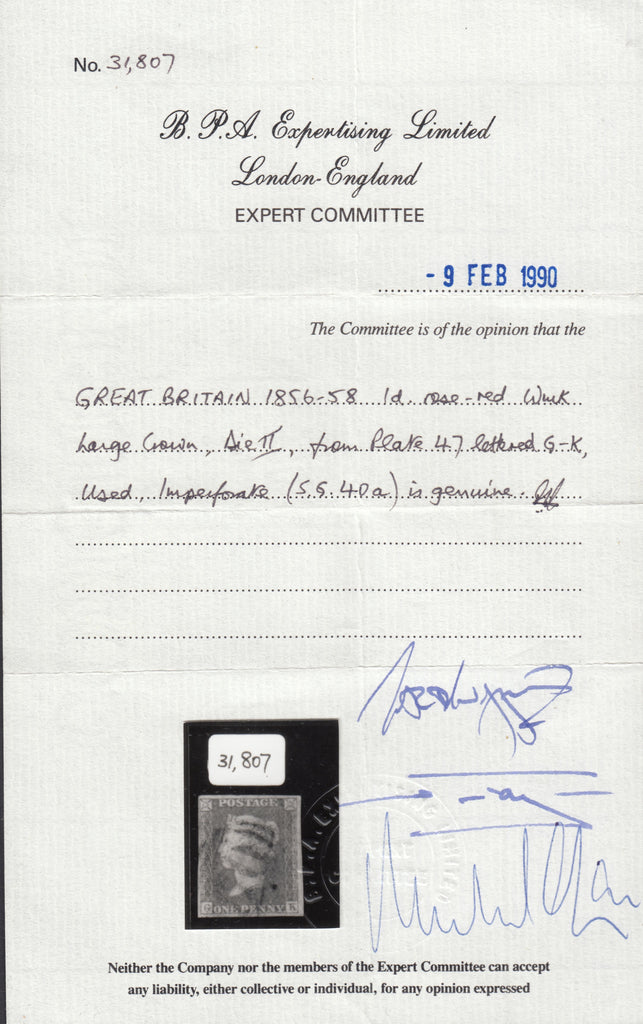 No. 31,807
B. P. A. Expertising Limited
London-England
EXPERT COMMITTEE
- 9 FEB 1990
The Committee is of the opinion that the
GREAT BRITAIN 1856-58 1d. rose-red Wmk
Large Crown, Die II, from Plate 47 lettered G-K,
Used, Imperforate (S.G. 40a) is genuine.
31,807
POSTAGE
G ONE PENNY K
Neither the Company nor the members of the Expert Committee can accept
any liability, either collective or individual, for any opinion expressed